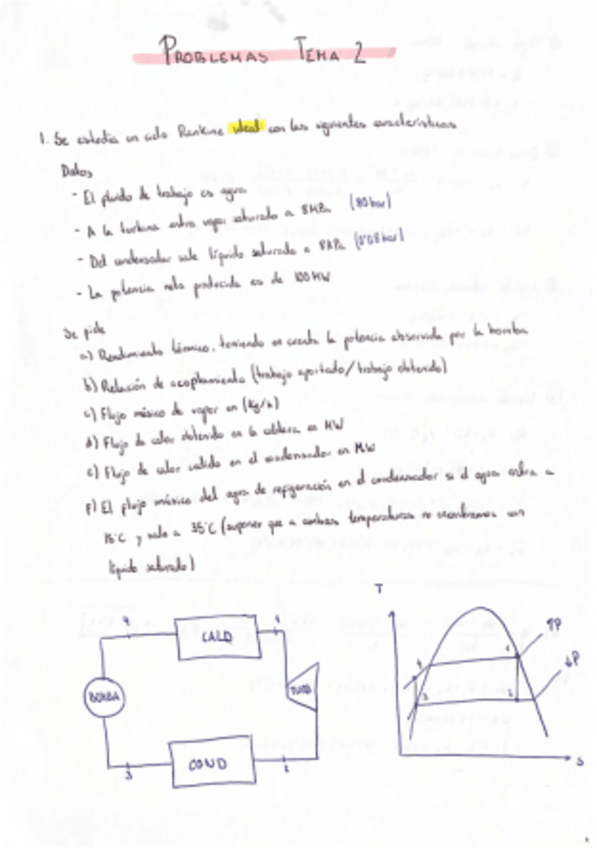 PROBLEMAS TEMA 2
1. Se estudia un ciclo Rankine ideal con las siguientes características
Datos
- El fluido de trabajo es agua
- A la turbina entra vapor saturado a 8MPa (80 bar)
- Del condensador sale líquido saturado a 8kPa (0'08 bar)
- La potencia neta producida es de 100 MW
Se pide
a) Rendimiento térmico, teniendo en cuenta la potencia absorvida por la bomba
b) Relación de acoplamiento (trabajo aportado/trabajo obtenido)
c) Flujo másico de vapor en (kg/h)
d) Flujo de calor obtenido en la caldera en MW
e) Flujo de calor cedido en el condensador en MW
f) El flujo másico del agua de refrigeración en el condensador si el agua entra a
15°C y sale a 35°C (suponer que a ambas temperaturas nos encontramos con
líquido saturado)
4 CALD 1
BOMBA TURB
3 COND 2
T
↑P
↓P
4 1
3 2
s